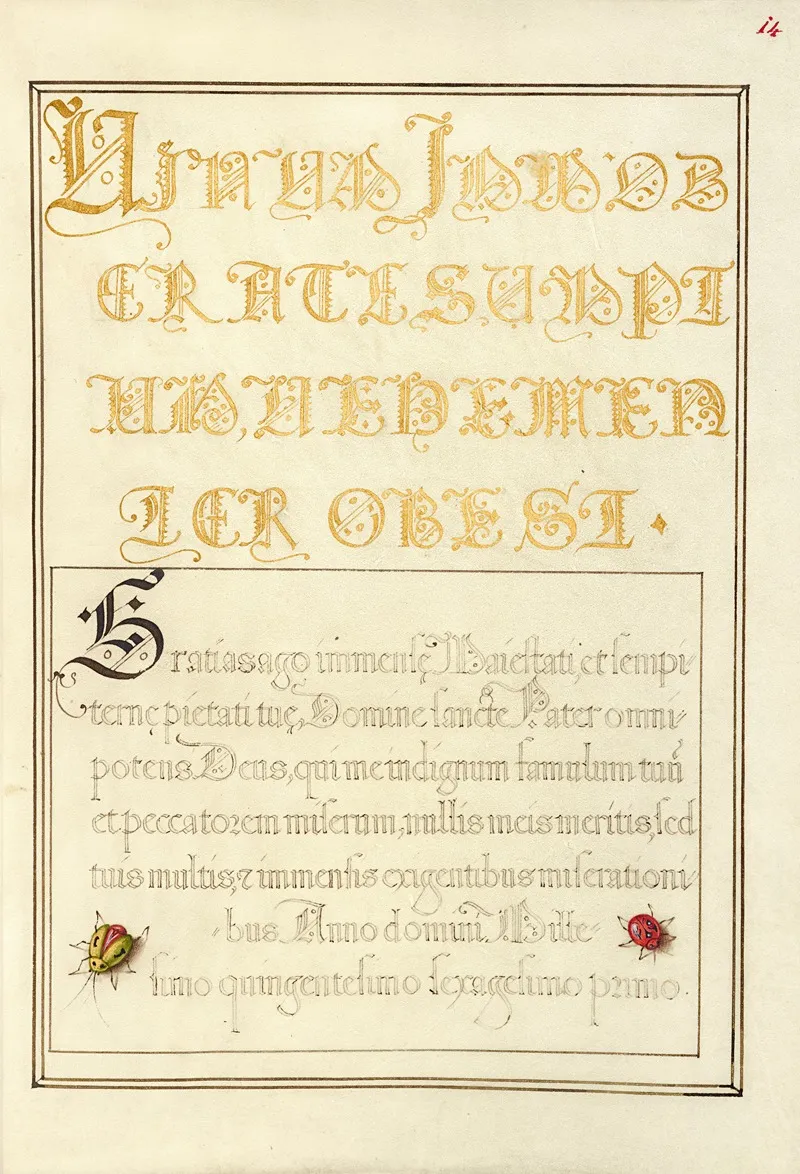 i4
VINUM IMMOD
ERATE SUMPT
UM, UEHEMEN
TER OBEST.
Gratias ago immensę Maiestati, et sempi-
ternę pietati tuę, Domine sancte Pater omni-
potens Deus, qui me indignum famulum tuũ
et peccatorem miserum, nullis meis meritis, sed
tuis multis, & immensis exigentibus miserationi-
-bus Anno domini Mille-
simo quingentesimo sexagesimo primo.